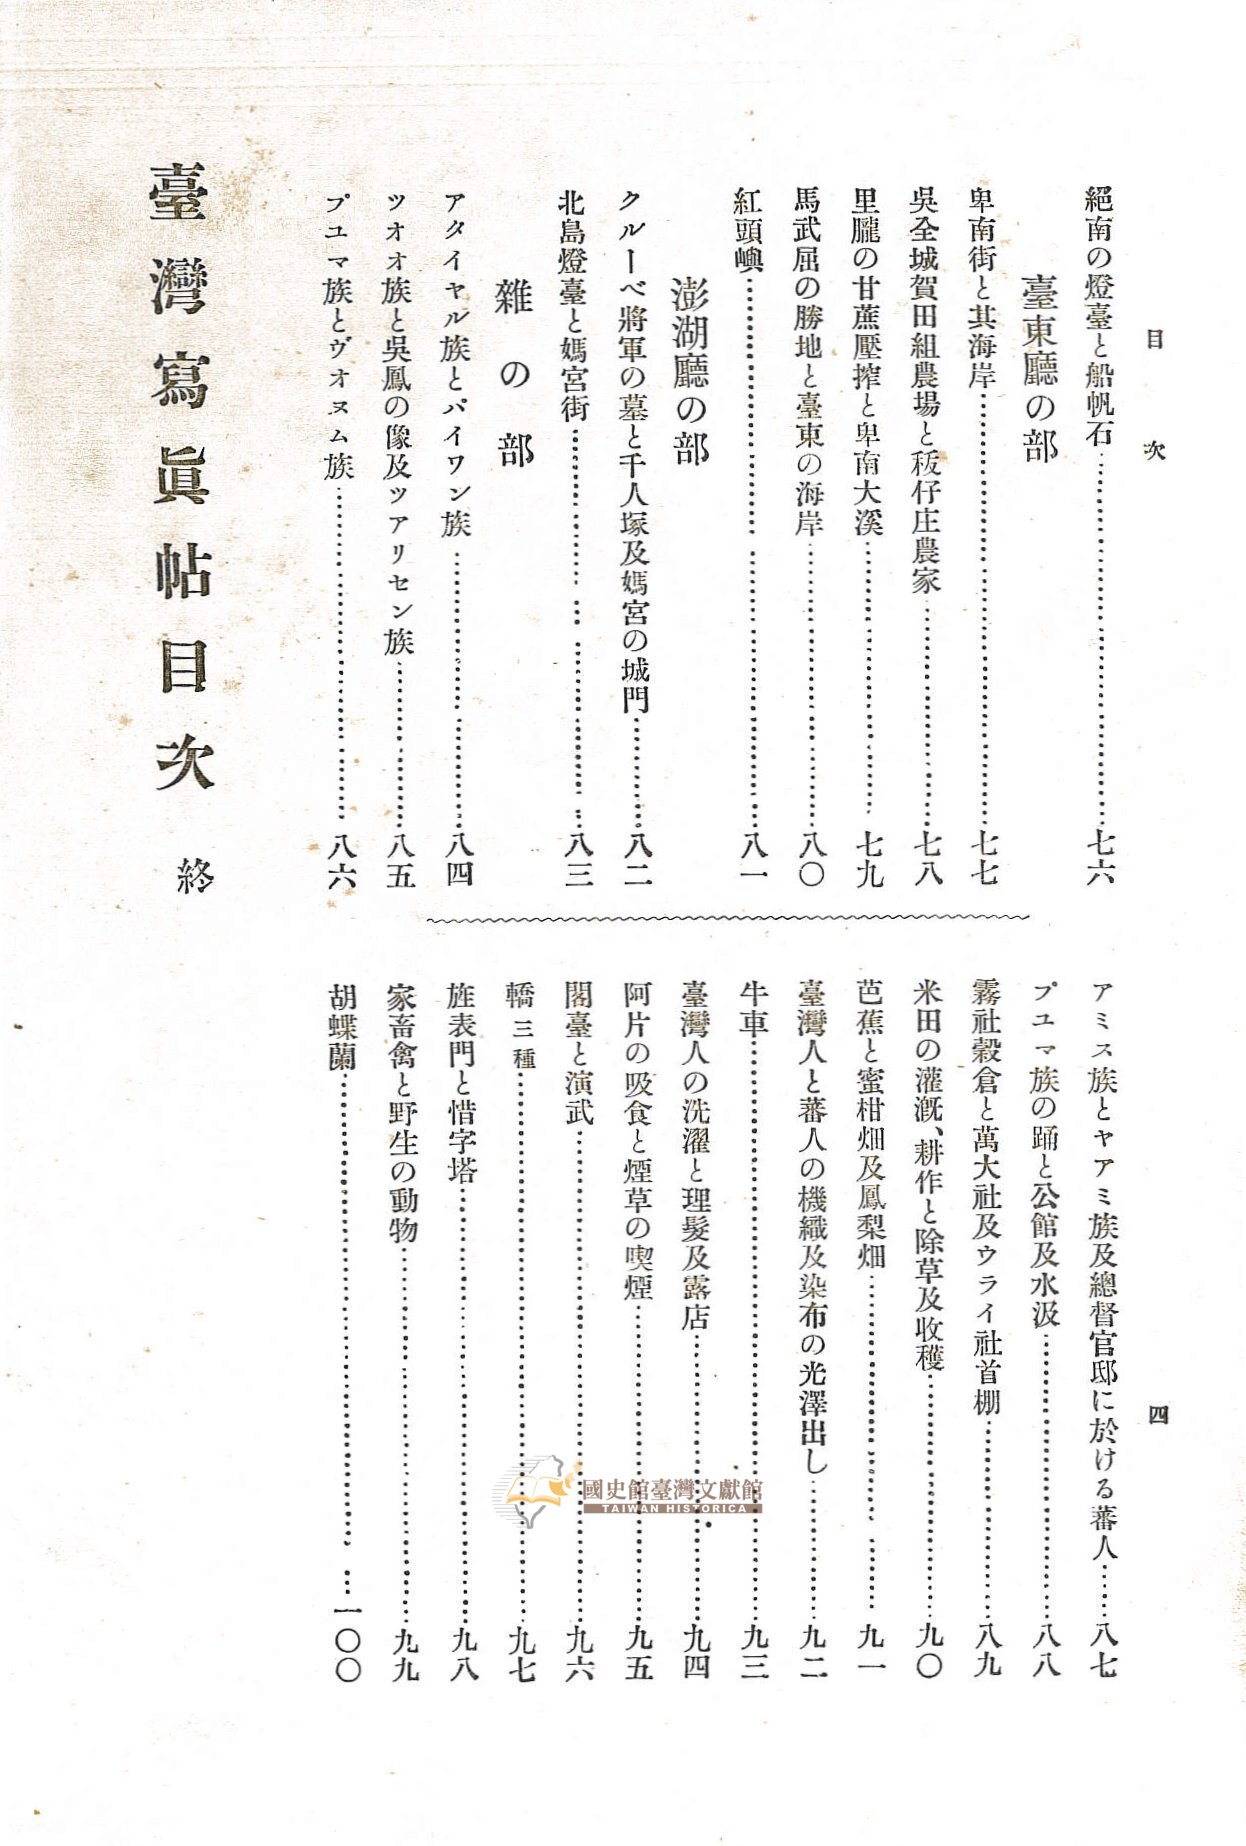 目次
四
絕南の燈臺と船帆石……七六
臺東廳の部
卑南街と其海岸……七七
吳全城賀田組農場と秡仔庄農家……七八
里壠の甘蔗壓搾と卑南大溪……七九
馬武屈の勝地と臺東の海岸……八〇
紅頭嶼……八一
澎湖廳の部
クルーベ將軍の墓と千人塚及媽宮の城門……八二
北島燈臺と媽宮街……八三
雜の部
アタイヤル族とパイワン族……八四
ツオオ族と吳鳳の像及ツアリセン族……八五
プユマ族とヴオヌム族……八六
アミス族とヤアミ族及總督官邸に於ける蕃人……八七
プユマ族の踊と公館及水汲……八八
霧社穀倉と萬大社及ウライ社首棚……八九
米田の灌漑、耕作と除草及收穫……九〇
芭蕉と蜜柑畑及鳳梨畑……九一
臺灣人と蕃人の機織及染布の光澤出し……九二
牛車……九三
臺灣人の洗濯と理髮及露店……九四
阿片の吸食と煙草の喫煙……九五
閣臺と演武……九六
轎三種……九七
旌表門と惜字塔……九八
家畜禽と野生の動物……九九
胡蝶蘭……一〇〇
臺灣寫眞帖目次 終
國史館臺灣文獻館
TAIWAN HISTORICA